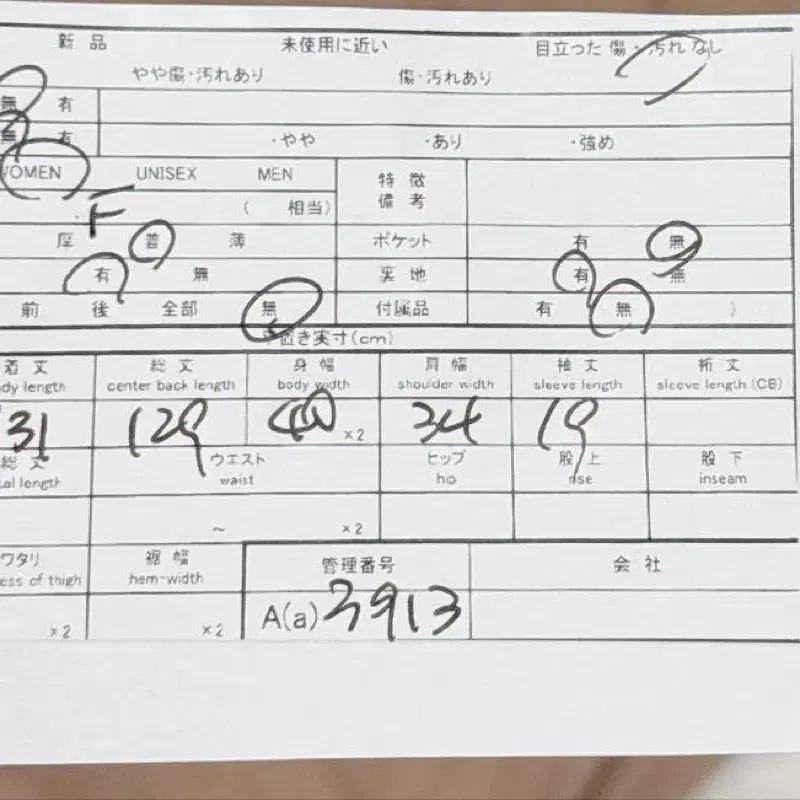 新品 未使用に近い 目立った傷・汚れなし
やや傷・汚れあり 傷・汚れあり
無 有
無 有 ・やや ・あり ・強め
WOMEN UNISEX MEN 特徴
備考
F ( 相当)
厚 普 薄 ポケット 有 無
有 無 裏地 有 無
前 後 全部 無 付属品 有 無 )
平置き実寸(cm)
着丈 総丈 身幅 肩幅 袖丈 裄丈
dy length center back length body width shoulder width sleeve length sleeve length (CB)
131 129 40 ×2 34 19
総丈 ウエスト ヒップ 股上 股下
al length waist hip rise inseam
~ ×2
ワタリ 裾幅 管理番号 会社
ess of thigh hem-width
×2 ×2 A(a) 3913